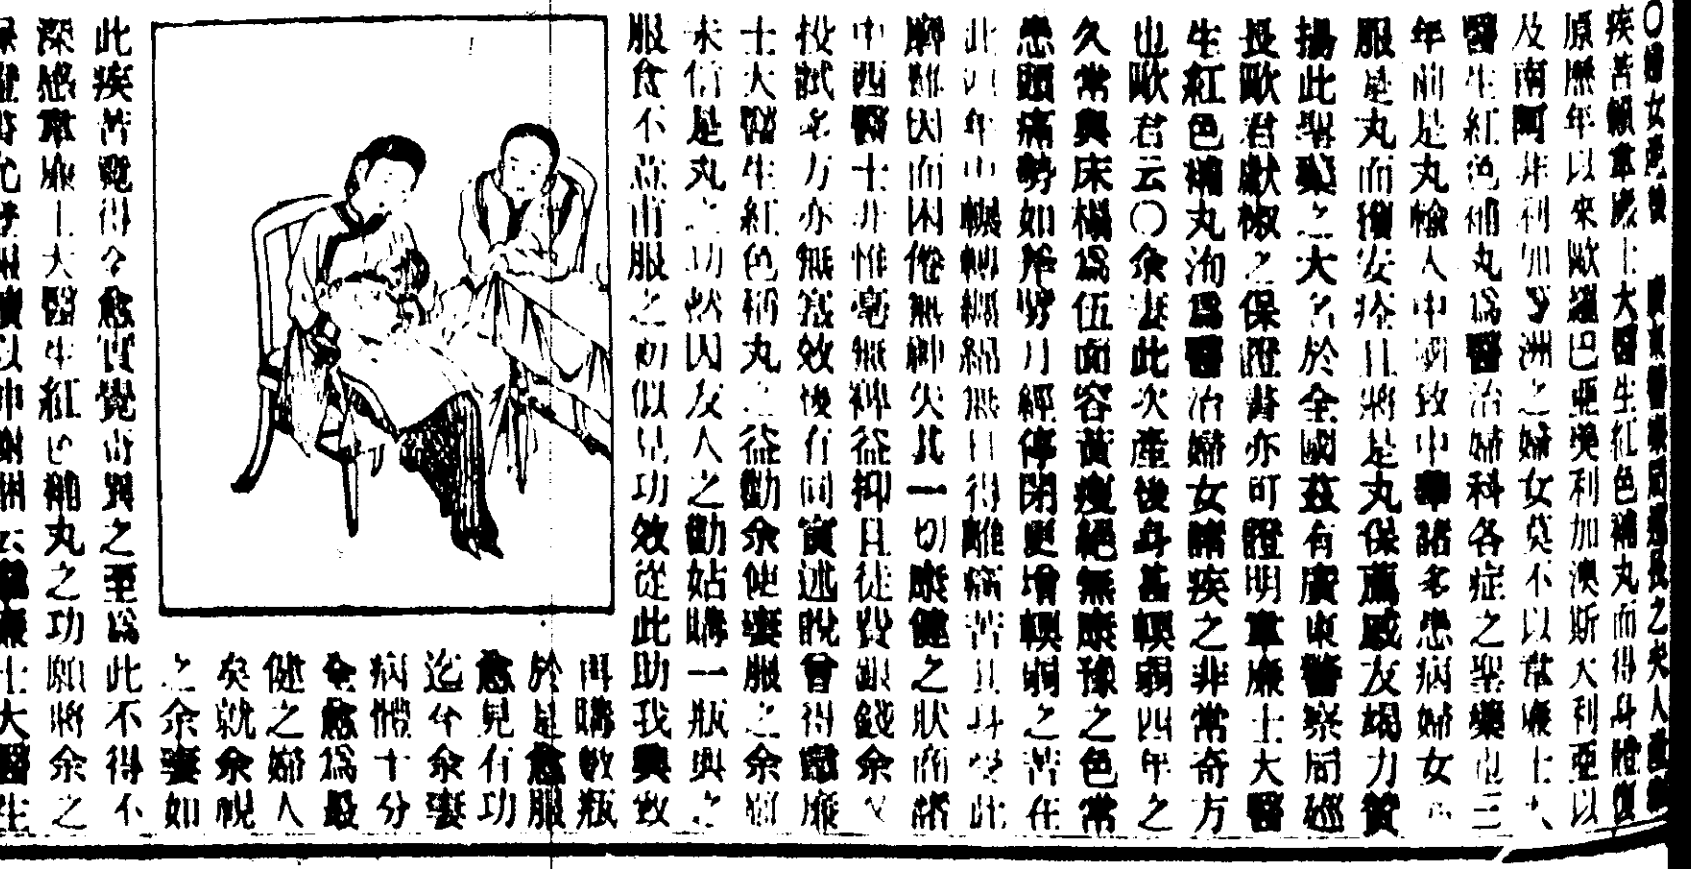 〇婦女產後 廣東醫察局巡長之夫人產後
疾苦賴韋廉士大醫生紅色補丸而得身體復
原歷年以來歐羅巴亞美利加澳斯大利亞以
及南阿非利加等洲之婦女莫不以韋廉士大
醫生紅色補丸為醫治婦科各症之聖藥也三
年前是丸輸入中國致中華諸多患病婦女
服是丸而獲安痊且將是丸保薦戚友竭力贊
揚此聖藥之大名於全國茲有廣東警察局巡
長歐君獻椒之保證書亦可證明韋廉士大醫
生紅色補丸洵為醫治婦女諸疾之非常奇方
也歐君云〇余妻此次產後身甚輭弱四年之
久常與床榻為伍面容黃瘦絕無康豫之色常
患頭痛勢如斧劈月經停閉更增輭弱之苦在
此四年中輾轉纏綿無日得離痛苦且身受此
磨難因而困倦無神失其一切康健之狀而諸
中西醫士非惟毫無裨益抑且徒費銀錢余又
投試多方亦無寔效後有同寅述說曾得韋廉
士大醫生紅色補丸之益勸余使妻服之余初
未信是丸之功然因友人之勸姑購一瓶與之
服食不意甫服之初似見功效從此助我興致
再購數瓶
於是愈服
愈見有功
迄今余妻
病體十分
全愈為最
健之婦人
矣就余視
之余妻如
此疾苦竟得全愈實覺奇異之至為此不得不
深感韋廉士大醫生紅色補丸之功願將余之